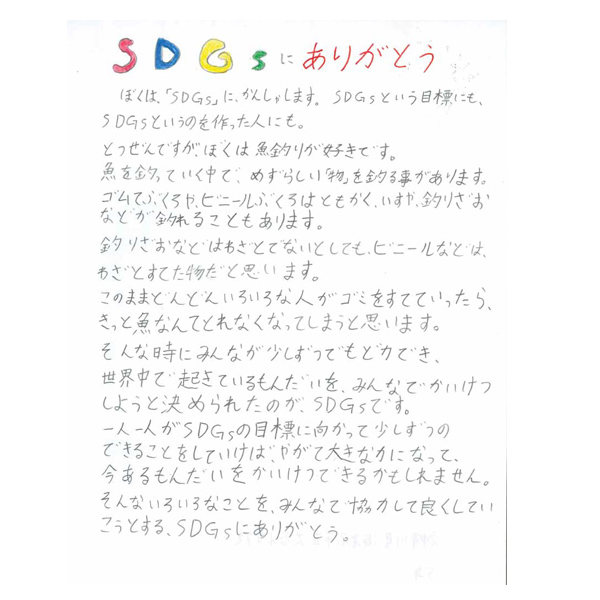 SDGsにありがとう
ぼくは、「SDGs」に、かんしゃします。SDGsという目標にも、
SDGsというのを作った人にも。
とつぜんですが、ぼくは魚釣りが好きです。
魚を釣っていく中で、めずらしい「物」を釣る事があります。
ゴムてぶくろや、ビニールぶくろはともかく、いすや、釣りざお
などが釣れることもあります。
釣りざおなどはわざとでないとしても、ビニールなどは、
わざとすてた物だと思います。
このままどんどんいろいろな人がゴミをすてていったら、
きっと魚なんてとれなくなってしまうと思います。
そんな時にみんなが少しずつでもどりょくができ、
世界中で起きているもんだいを、みんなでかいけつ
しようと決められたのが、SDGsです。
一人一人がSDGsの目標に向かって少しずつの
できることをしていけば、やがて大きな力になって、
今あるもんだいをかいけつできるかもしれません。
そんないろいろなことを、みんなで協力して良くしてい
こうとする、SDGsにありがとう。